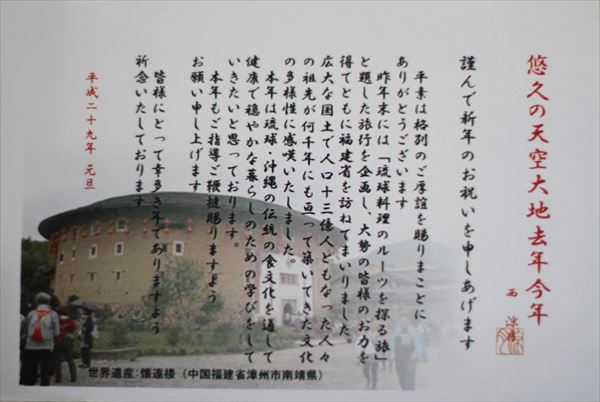 悠久の天空大地去年今年
西
謹んで新年のお祝いを申しあげます
平素は格別のご厚誼を賜りまことに
ありがとうございます
昨年末には「琉球料理のルーツを探る旅」
と題した旅行を企画し、大勢の皆様のお力を
得てともに福建省を訪ねてまいりました。
広大な国土で人口十三億人ともなった人々
の祖先が何千年にも亘って築いてきた文化
の多様性に感嘆いたしました。
本年は琉球・沖縄の伝統の食文化を通して
健康で穏やかな暮らしのための学びをして
いきたいと思っております。
本年もご指導ご鞭撻賜りますよう
お願い申し上げます
皆様にとって幸多き年でありますよう
祈念いたしております
平成二十九年 元旦
世界遺産:懐遠楼 (中国福建省漳州市南靖県)